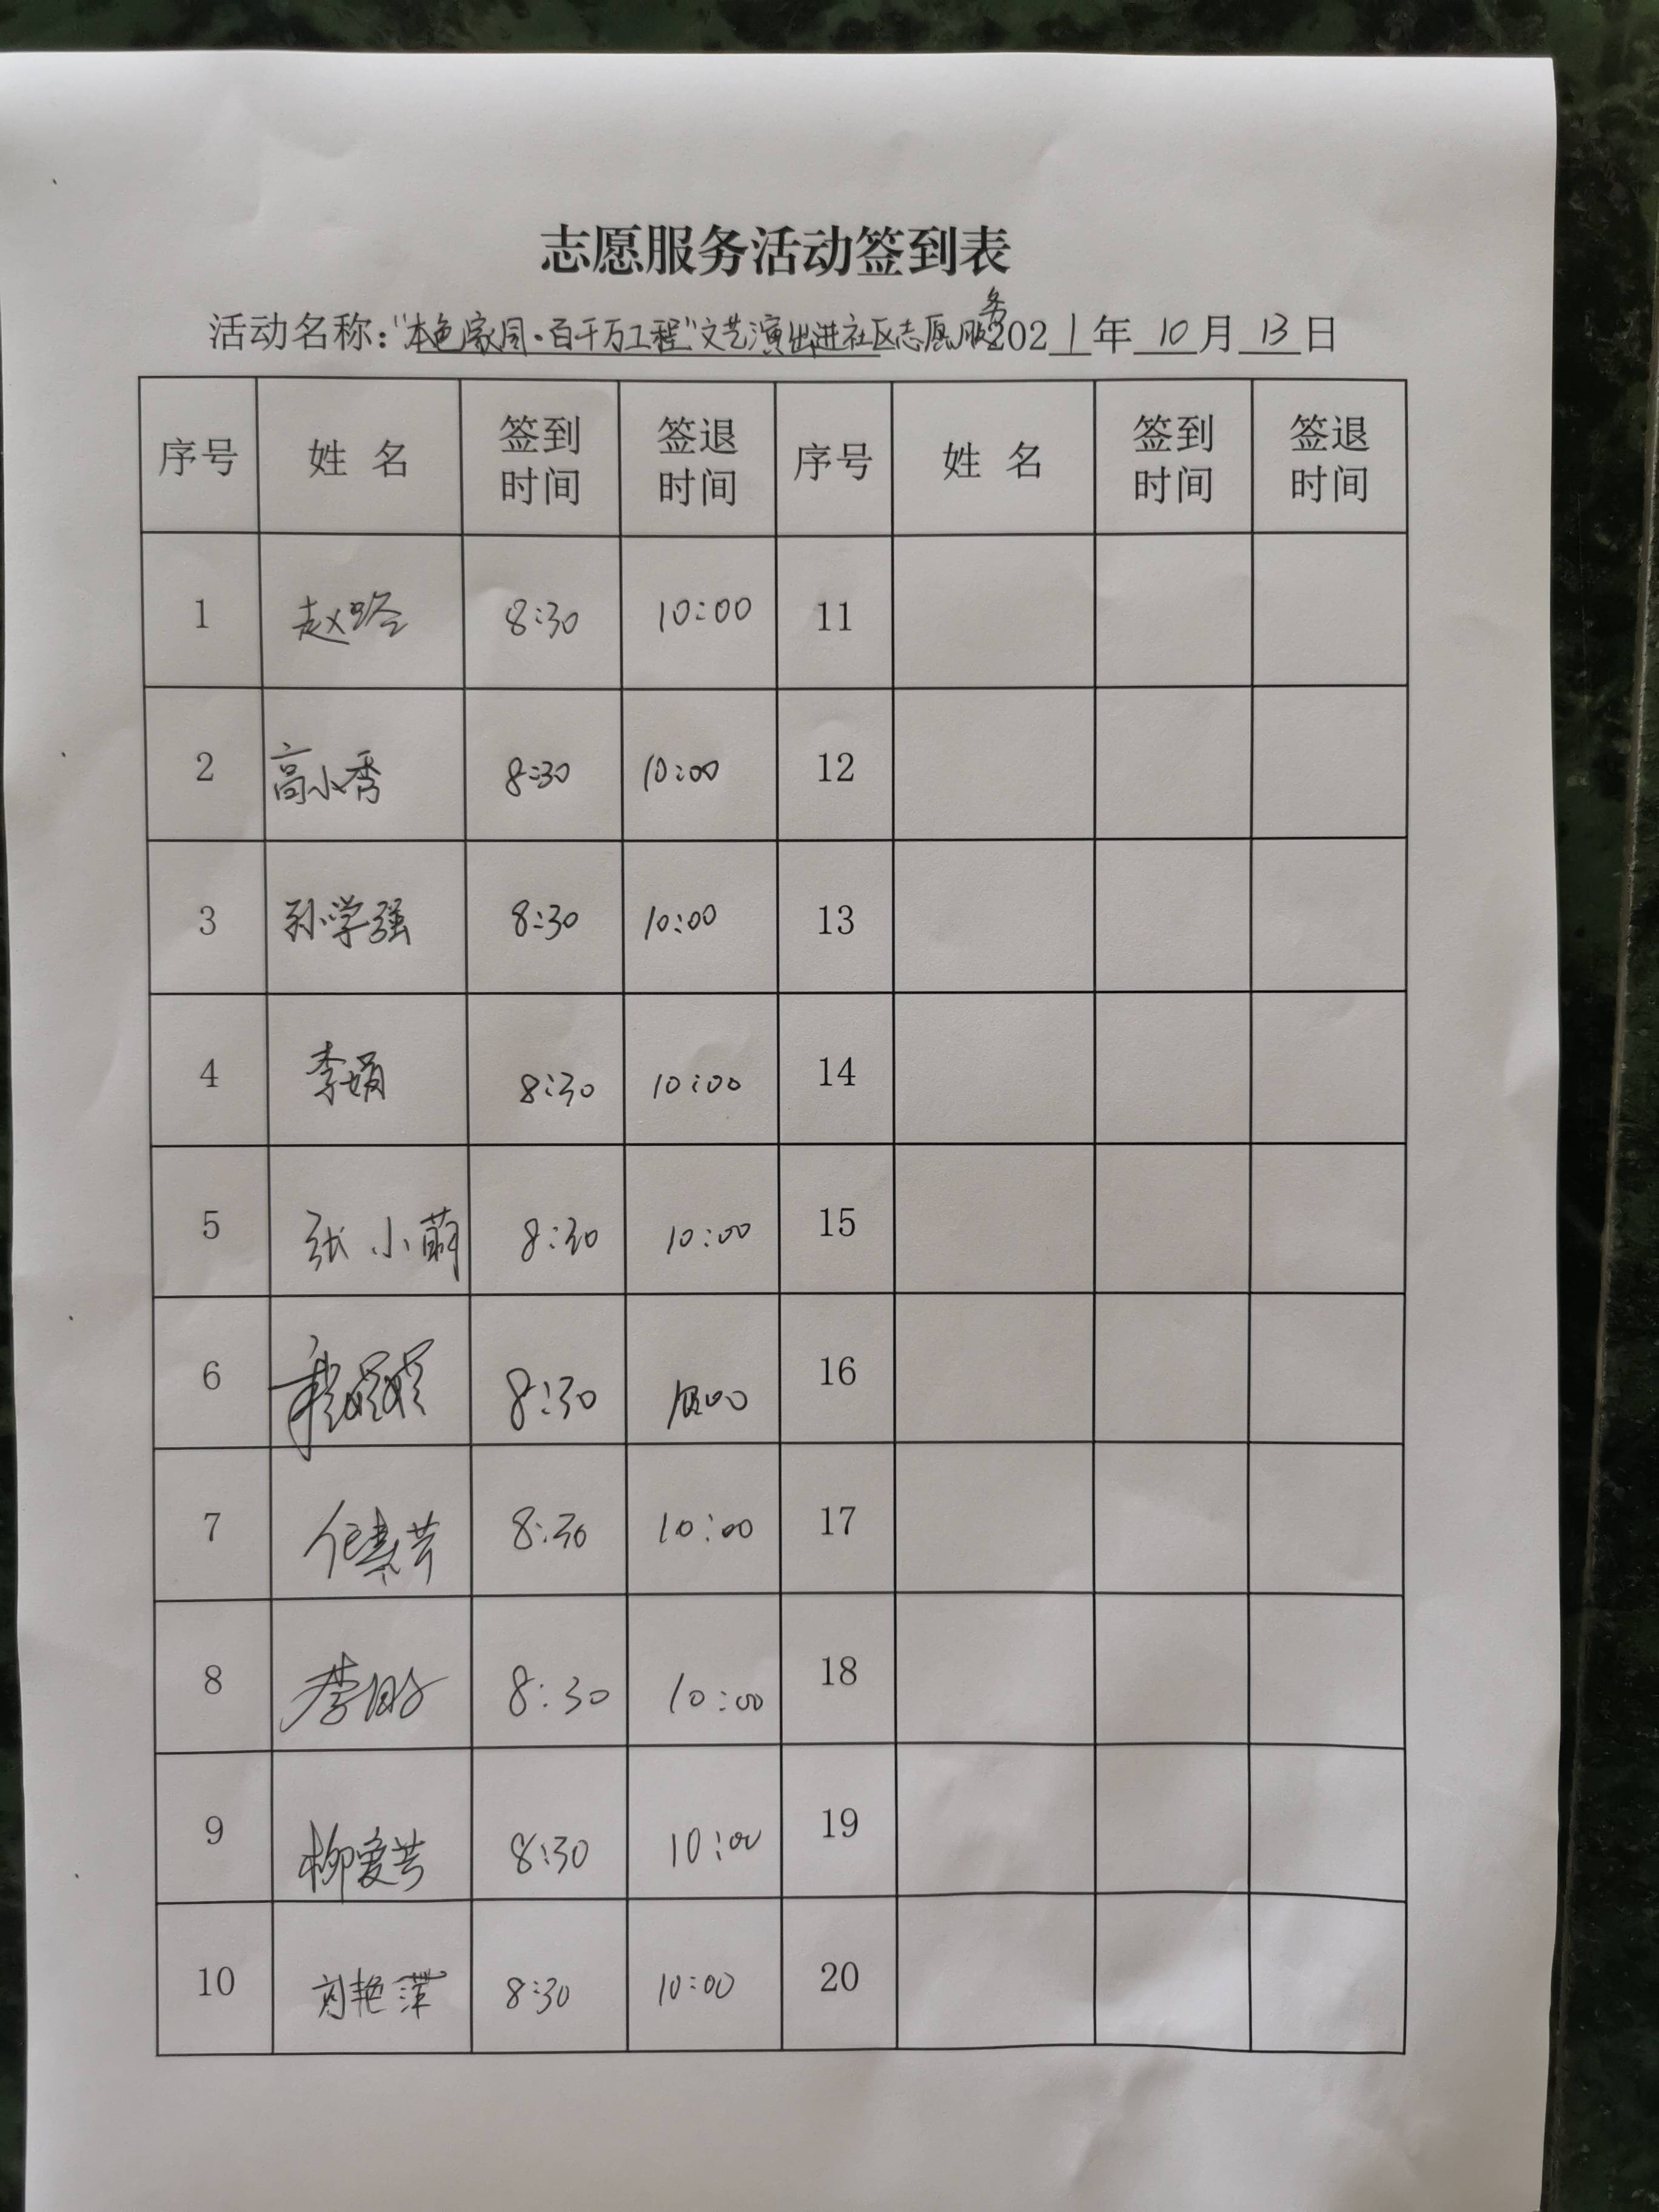 志愿服务活动签到表
活动名称："本色家园·百千万工程"文艺演出进社区志愿服务 2021年10月13日
序号 姓名 签到时间 签退时间 序号 姓名 签到时间 签退时间
1 赵 8:30 10:00 11
2 高小秀 8:30 10:00 12
3 孙学强 8:30 10:00 13
4 李娟 8:30 10:00 14
5 张小萌 8:30 10:00 15
6 8:30 10:00 16
7 任素芳 8:30 10:00 17
8 李 8:30 10:00 18
9 柳爱芳 8:30 10:00 19
10 刘艳萍 8:30 10:00 20